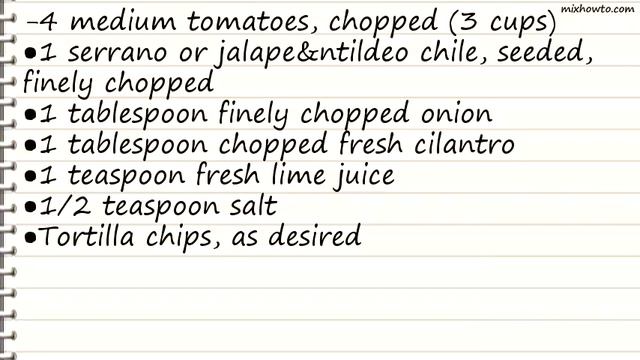 mixhowto.com
-4 medium tomatoes, chopped (3 cups)
●1 serrano or jalape&ntildeo chile, seeded,
finely chopped
●1 tablespoon finely chopped onion
●1 tablespoon chopped fresh cilantro
●1 teaspoon fresh lime juice
●1/2 teaspoon salt
●Tortilla chips, as desired